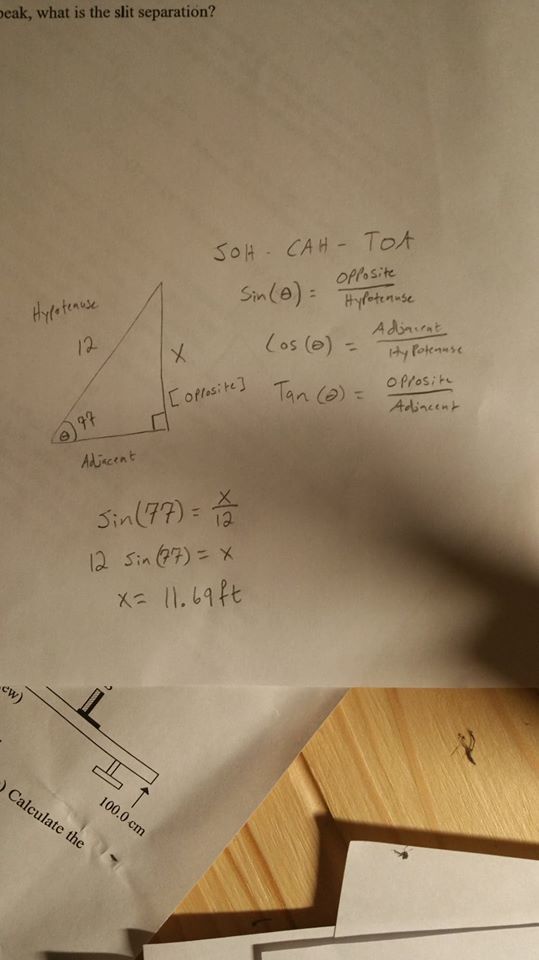 peak, what is the slit separation?
SOH - CAH - TOA
Sin(θ) = Opposite / Hypotenuse
Cos(θ) = Adjacent / Hypotenuse
Tan(θ) = Opposite / Adjacent
Hypotenuse
12
X
[Opposite]
θ 77
Adjacent
Sin(77) = X / 12
12 Sin(77) = x
x = 11.69ft
ew)
100.0 cm
) Calculate the